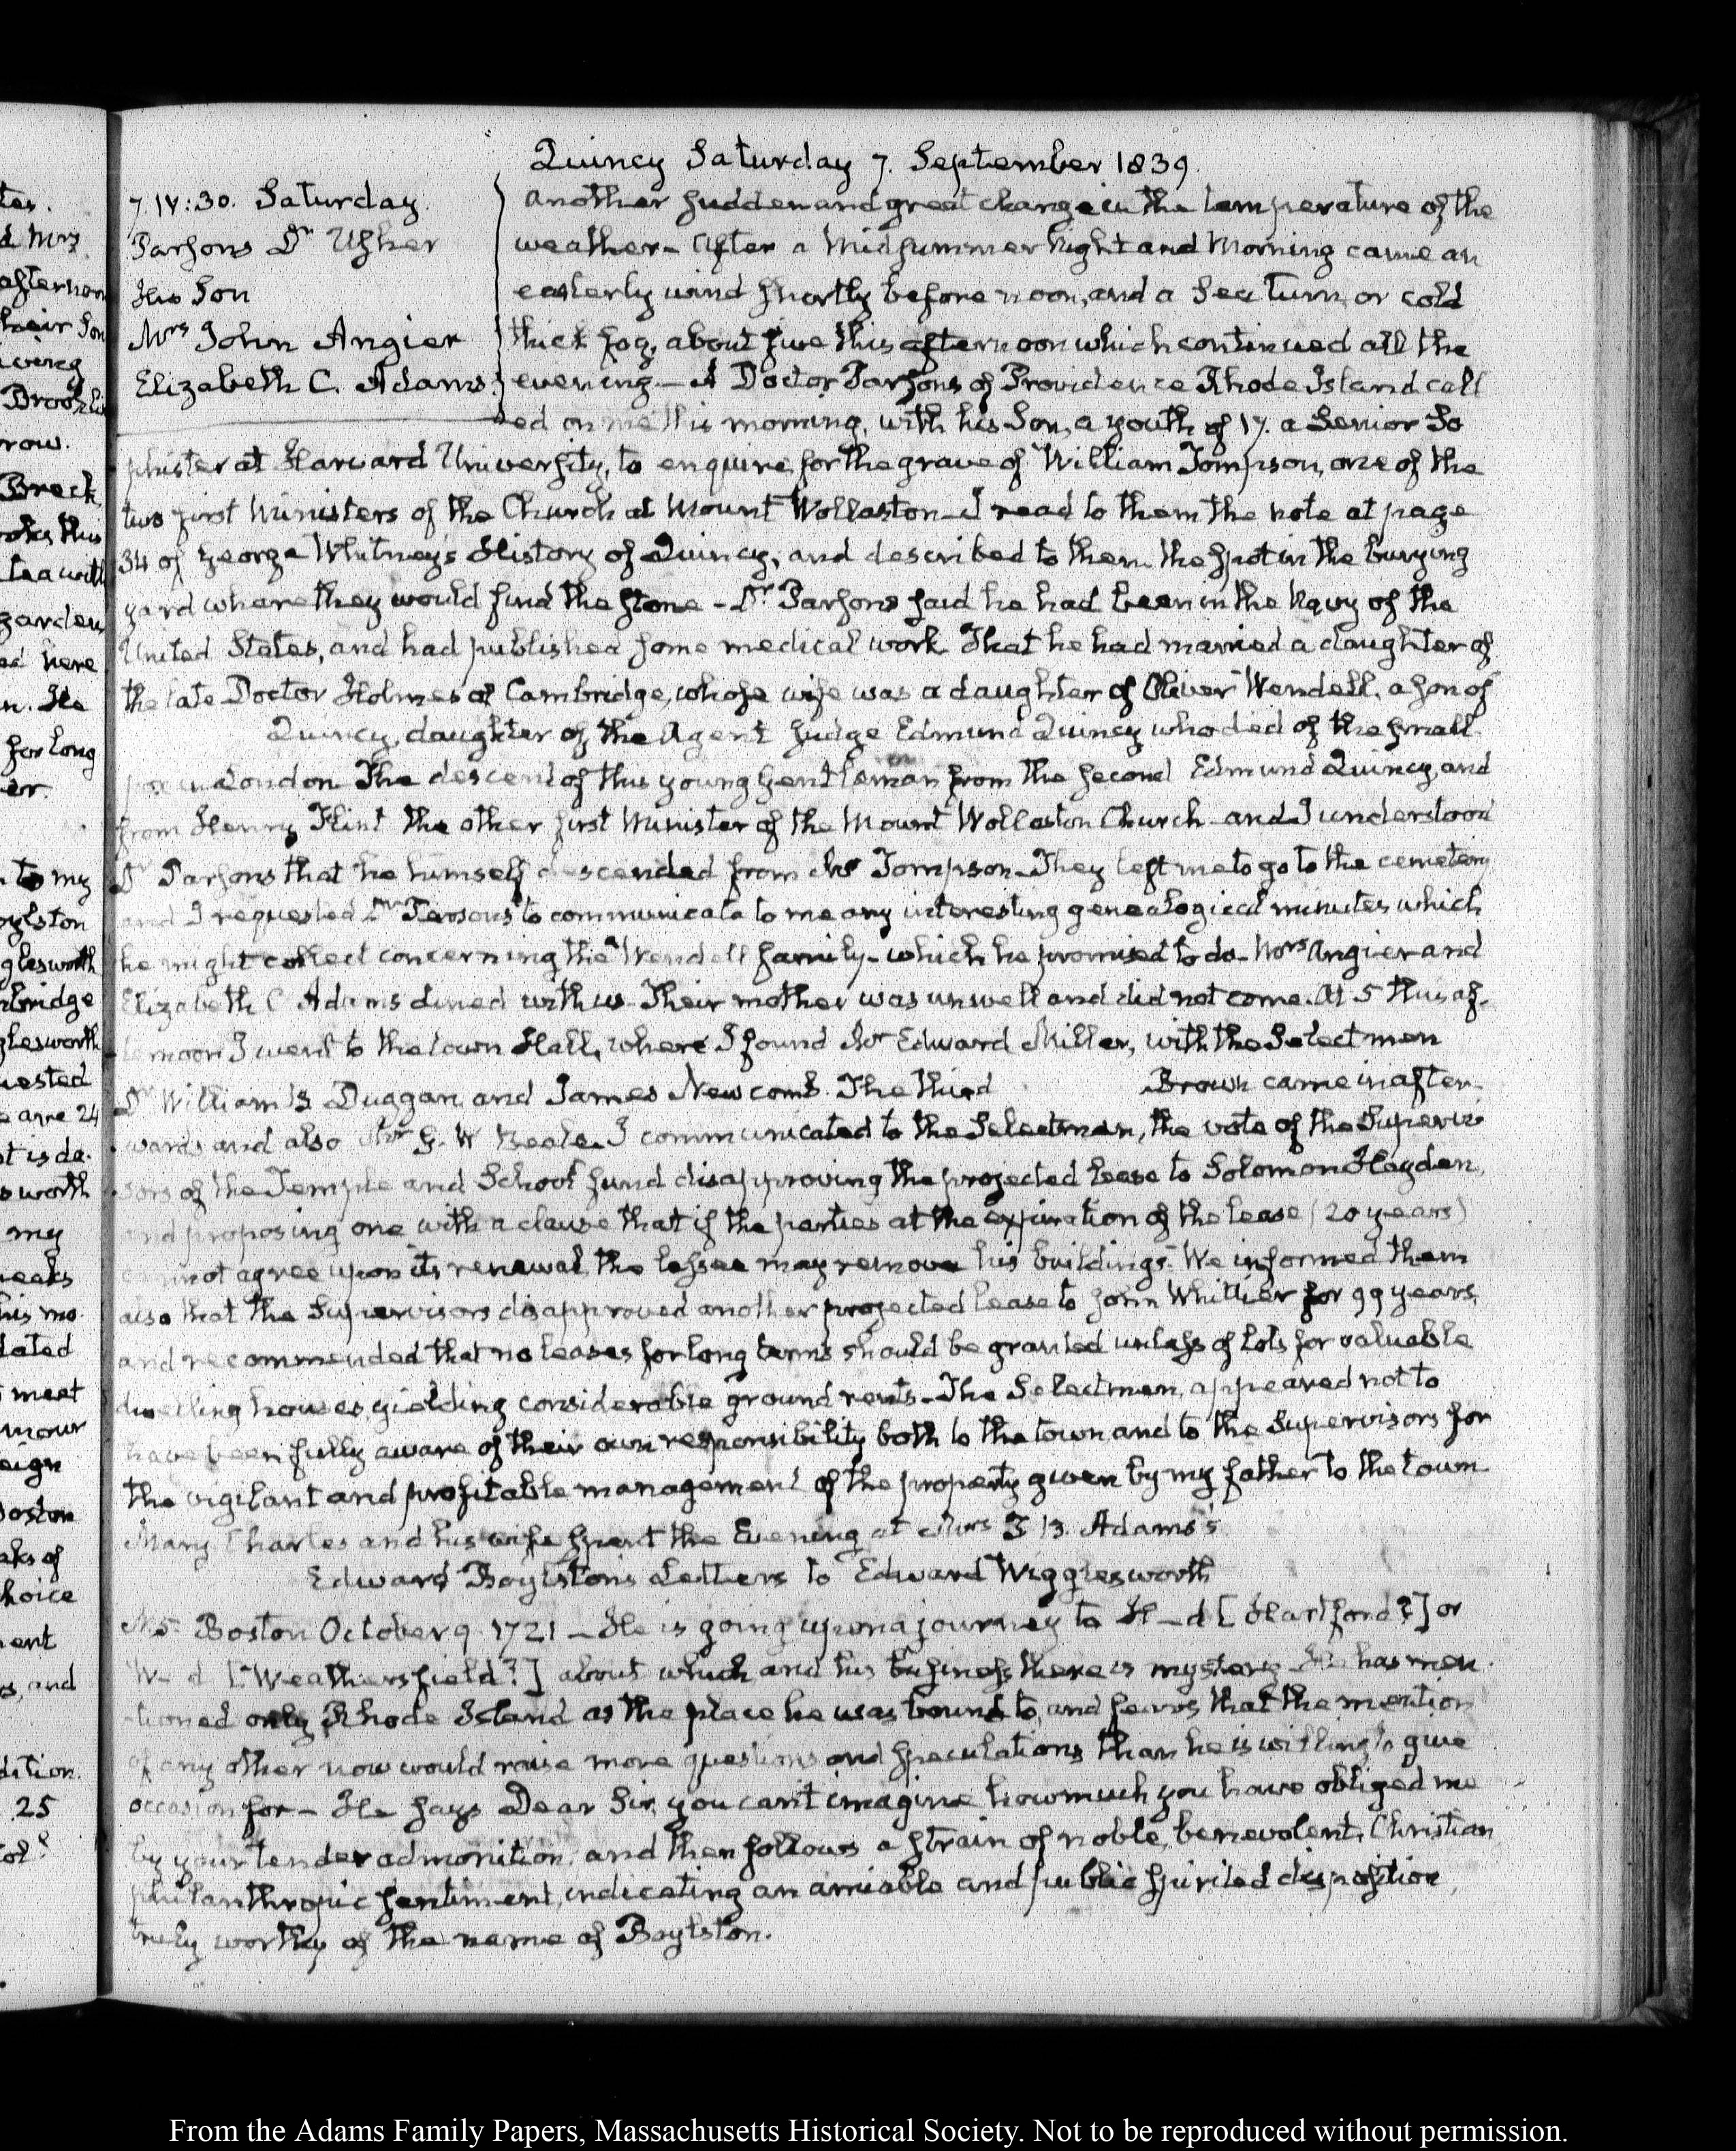 Quincy Saturday 7. September 1839.
7. IV:30. Saturday.
Parsons Dr Usher
His Son
Mrs John Angier
Elizabeth C. Adams
Another sudden and great change in the temperature of the
weather — After a Midsummer Night and Morning came an
easterly wind shortly before noon, and a Sea turn, or cold
thick fog, about five this afternoon which continued all the
evening — A Doctor Parsons of Providence Rhode Island call
ed on me this morning, with his Son, a youth of 17. a Senior So
phister at Harvard University, to enquire for the grave of William Tompson, one of the
two first Ministers of the Church at Mount Wollaston — I read to them the note at page
34 of George Whitney's History of Quincy, and described to them the spot in the burying
yard where they would find the stone — Dr Parsons said he had been in the Navy of the
United States, and had published some medical work. That he had married a daughter of
the late Doctor Holmes of Cambridge, whose wife was a daughter of Oliver Wendell, a son of
Quincy, daughter of the Agent Judge Edmund Quincy who died of the small
pox in London. The descent of this young Gentleman from the second Edmund Quincy, and
from Henry Flint the other first Minister of the Mount Wollaston Church — and I understood
Dr Parsons that he himself descended from Mr Tompson — They left me to go to the cemetery
and I requested Dr Parsons to communicate to me any interesting genealogical minutes which
he might collect concerning the Wendell family — which he promised to do — Mrs Angier and
Elizabeth C Adams dined with us — Their mother was unwell and did not come. At 5 this af-
ternoon I went to the town Hall, where I found Mr Edward Miller, with the Selectmen
Dr William B Duggan, and James Newcomb. The third Brown came in after-
wards and also Mr G. W Beale. I communicated to the Selectmen, the vote of the Supervi-
sors of the Temple and School fund disapproving the projected lease to Solomon Hayden,
and proposing one with a clause that if the parties at the expiration of the lease (20 years)
cannot agree upon its renewal, the lessee may remove his buildings. We informed them
also that the Supervisors disapproved another projected lease to John Whittier for 99 years,
and recommended that no leases for long terms should be granted unless of lots for valuable
dwelling houses, yielding considerable ground rents — The Selectmen, appeared not to
have been fully aware of their own responsibility both to the town and to the Supervisors for
the vigilant and profitable management of the property given by my father to the town
Mary, Charles and his wife spent the Evening at Mrs T. B. Adams's
Edward Boylston's Letters to Edward Wigglesworth
N. 5. Boston October 9. 1721 — He is going upon a journey to H—d [Hartford?] or
W—d [Weathersfield?] about which and his business there is mystery He has men
tioned only Rhode Island as the place he was bound to, and fears that the mention
of any other now would raise more questions and speculations than he is willing to give
occasion for — He says Dear Sir, you can't imagine how much you have obliged me
by your tender admonition, and then follows a strain of noble, benevolent, Christian
philanthropic sentiment, indicating an amiable and public spirited disposition,
truly worthy of the name of Boylston.
From the Adams Family Papers, Massachusetts Historical Society. Not to be reproduced without permission.